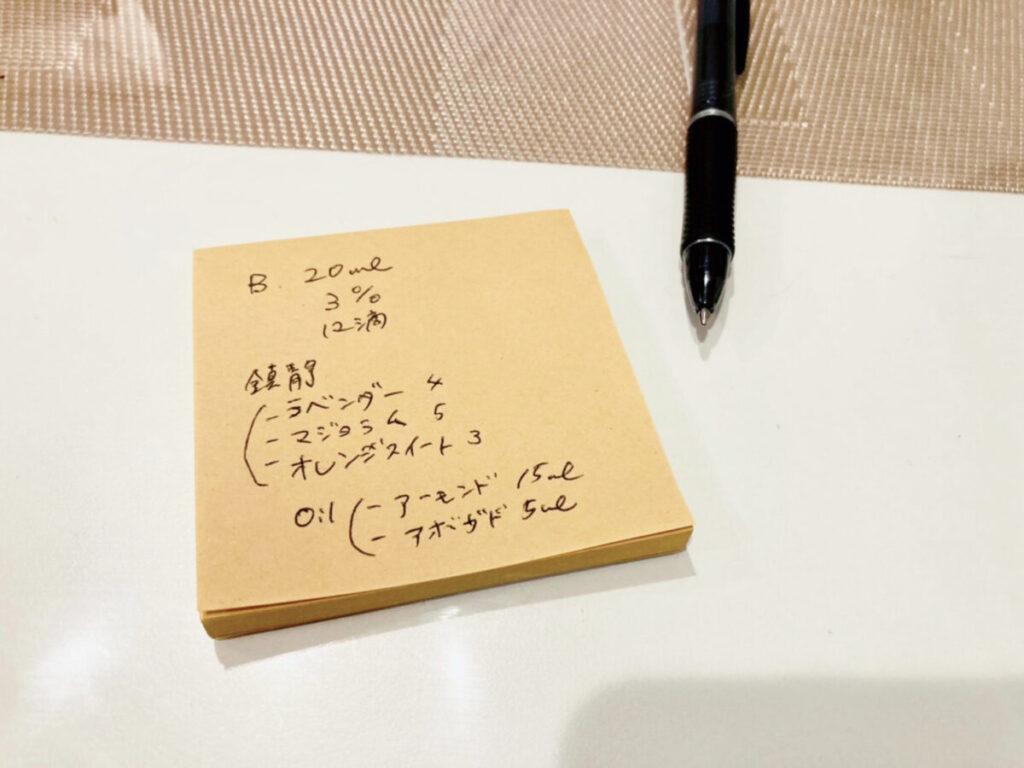 B. 20ml
3%
12滴
鎮静
- ラベンダー 4
- マジョラム 5
- オレンジスイート 3
Oil - アーモンド 15ml
- アボガド 5ml